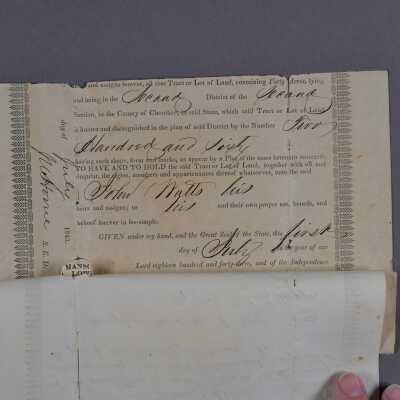 and assigns forever, all that Tract or Lot of Land, containing Forty Acres, lying
and being in the Second District of the Second
Section, in the County of Cherokee, in said State, which said Tract or Lot of Land
is known and distinguished in the plan of said District by the Number Two
Hundred and Sixty
having such shape, form and marks, as appear by a Plan of the same hereunto annexed:
TO HAVE AND TO HOLD the said Tract or Lot of Land, together with all and
singular, the rights, members and appurtenances thereof whatsoever, unto the said
John Watts his
heirs and assigns; to his and their own proper use, benefit, and
behoof forever in fee-simple.
GIVEN under my hand, and the Great Seal of the State, this first
day of July in the year of our
Lord eighteen hundred and forty-three, and of the Independence
day of July
1843.
S. E. D.
MANS